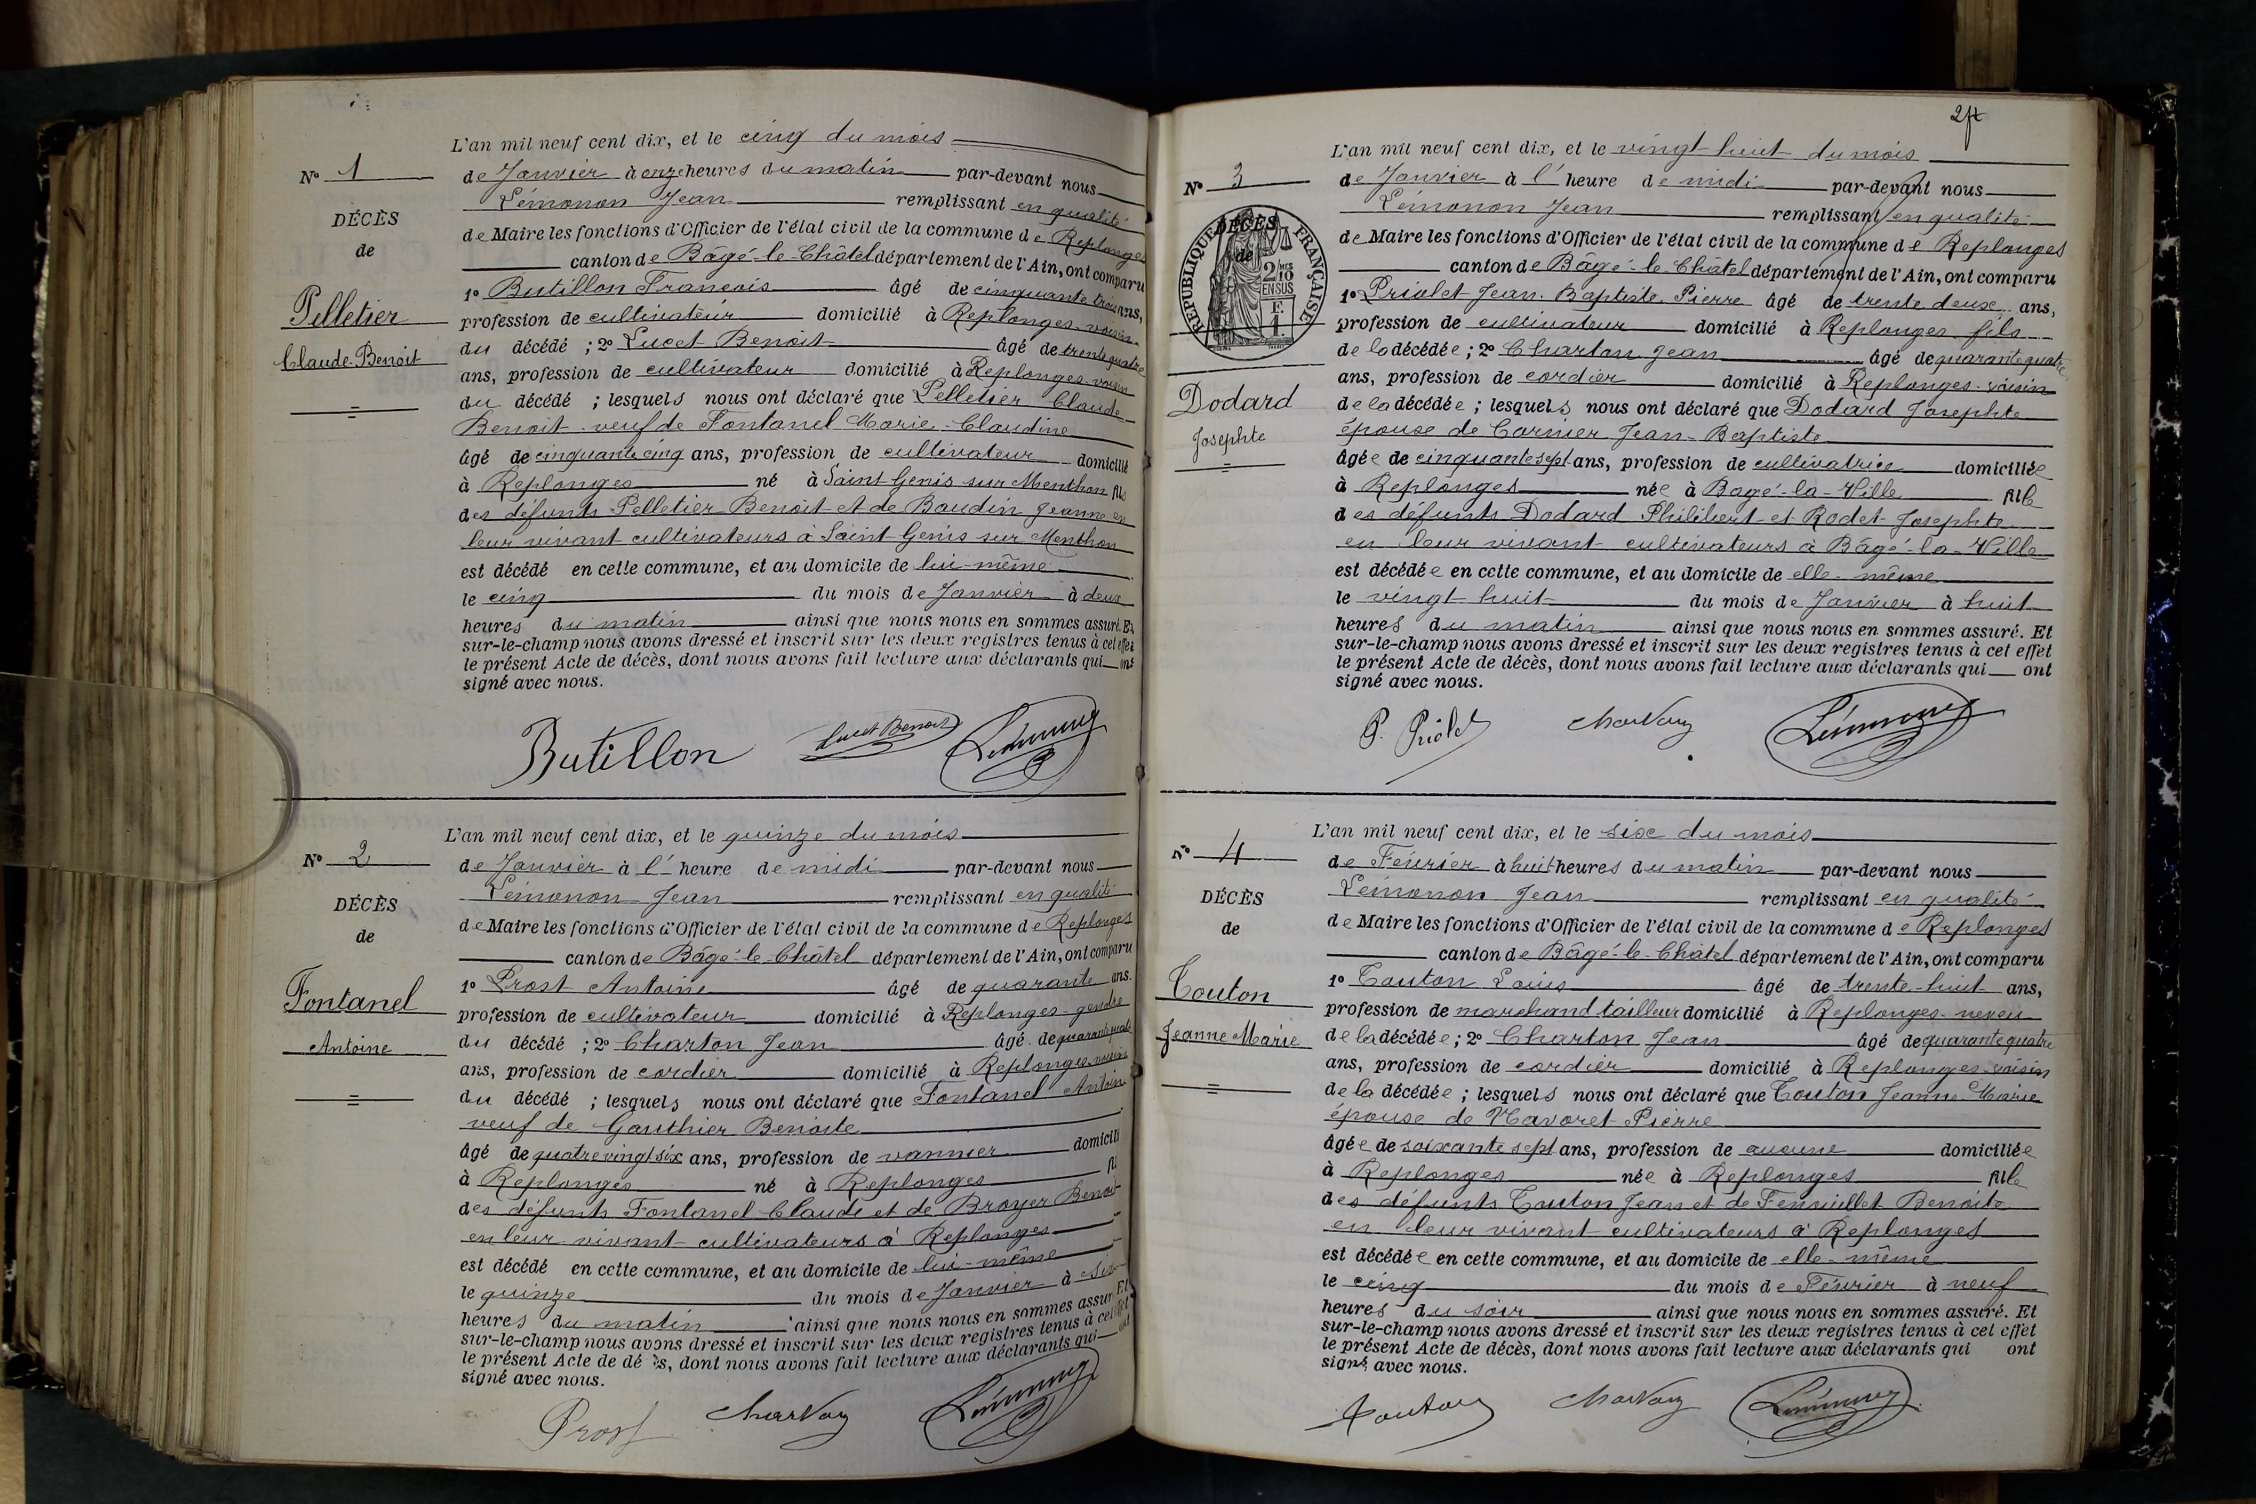 L'an mil neuf cent dix, et le cinq du mois
N° 1
de Janvier à onze heures du matin par-devant nous
Lémonon Jean remplissant en qualité
DÉCÈS
de Maire les fonctions d'Officier de l'état civil de la commune de Replonges
de
canton de Bâgé-le-Châtel département de l'Ain, ont comparu
1° Butillon François âgé de cinquante trois ans,
Pelletier
profession de cultivateur domicilié à Replonges voisin
du décédé ; 2° Lucet Benoit âgé de trente quatre
Claude-Benoit
ans, profession de cultivateur domicilié à Replonges voisin
du décédé ; lesquels nous ont déclaré que Pelletier Claude
Benoit veuf de Fontanel Marie-Claudine
âgé de cinquante cinq ans, profession de cultivateur domicilié
à Replonges né à Saint Genis sur Menthon fils
des défunts Pelletier Benoit et de Boudin Jeanne en
leur vivant cultivateurs à Saint Genis sur Menthon
est décédé en cette commune, et au domicile de lui-même
le cinq du mois de Janvier à deux
heures du matin ainsi que nous nous en sommes assuré. Et
sur-le-champ nous avons dressé et inscrit sur les deux registres tenus à cet effet
le présent Acte de décès, dont nous avons fait lecture aux déclarants qui ont
signé avec nous.
Butillon Lucet Benoit Lémonon
L'an mil neuf cent dix, et le quinze du mois
N° 2
de Janvier à l' heure de midi par-devant nous
Lémonon Jean remplissant en qualité
DÉCÈS
de Maire les fonctions d'Officier de l'état civil de la commune de Replonges
de
canton de Bâgé-le-Châtel département de l'Ain, ont comparu
1° Prost Antoine âgé de quarante ans.
Fontanel
profession de cultivateur domicilié à Replonges gendre
Antoine
du décédé ; 2° Charton Jean âgé de quarante quatre
ans, profession de cordier domicilié à Replonges voisin
du décédé ; lesquels nous ont déclaré que Fontanel Antoine
veuf de Gauthier Benoite
âgé de quatre vingt six ans, profession de vannier domicilié
à Replonges né à Replonges fil
des défunts Fontanel Claude et de Broyer Benoit
en leur vivant cultivateurs à Replonges
est décédé en cette commune, et au domicile de lui-même
le quinze du mois de Janvier à six
heures du matin ainsi que nous nous en sommes assuré. Et
sur-le-champ nous avons dressé et inscrit sur les deux registres tenus à cet effet
le présent Acte de décès, dont nous avons fait lecture aux déclarants qui ont
signé avec nous.
Prost Charton Lémonon
L'an mil neuf cent dix, et le vingt huit du mois
N° 3
de Janvier à l' heure de midi par-devant nous
Lémonon Jean remplissant en qualité
DÉCÈS
de
RÉPUBLIQUE FRANÇAISE
2/10MES
EN SUS
1 F.
de Maire les fonctions d'Officier de l'état civil de la commune de Replonges
canton de Bâgé-le-Châtel département de l'Ain, ont comparu
1° Priolet Jean Baptiste Pierre âgé de trente deux ans,
profession de cultivateur domicilié à Replonges fils
de la décédée ; 2° Charton Jean âgé de quarante quatre
ans, profession de cordier domicilié à Replonges voisin
Dodard
de la décédée ; lesquels nous ont déclaré que Dodard Josephte
Josephte
épouse de Carnier Jean-Baptiste
âgée de cinquante sept ans, profession de cultivatrice domiciliée
à Replonges née à Bagé-la-Ville fille
des défunts Dodard Philibert et Rodet Josephte
en leur vivant cultivateurs à Bâgé-la-Ville
est décédée en cette commune, et au domicile de elle-même
le vingt huit du mois de Janvier à huit
heures du matin ainsi que nous nous en sommes assuré. Et
sur-le-champ nous avons dressé et inscrit sur les deux registres tenus à cet effet
le présent Acte de décès, dont nous avons fait lecture aux déclarants qui ont
signé avec nous.
P. Priolet Charton Lémonon
L'an mil neuf cent dix, et le six du mois
N° 4
de Février à huit heures du matin par-devant nous
Lémonon Jean remplissant en qualité
DÉCÈS
de Maire les fonctions d'Officier de l'état civil de la commune de Replonges
de
canton de Bâgé-le-Châtel département de l'Ain, ont comparu
1° Touton Louis âgé de trente-huit ans,
Touton
profession de marchand tailleur domicilié à Replonges neveu
Jeanne Marie
de la décédée ; 2° Charton Jean âgé de quarante quatre
ans, profession de cordier domicilié à Replonges voisin
de la décédée ; lesquels nous ont déclaré que Touton Jeanne Marie
épouse de Navoret Pierre
âgée de soixante sept ans, profession de aucune domiciliée
à Replonges née à Replonges fille
des défunts Touton Jean et de Feuuillet Benoite
en leur vivant cultivateurs à Replonges
est décédée en cette commune, et au domicile de elle-même
le cinq du mois de Février à neuf
heures du soir ainsi que nous nous en sommes assuré. Et
sur-le-champ nous avons dressé et inscrit sur les deux registres tenus à cet effet
le présent Acte de décès, dont nous avons fait lecture aux déclarants qui ont
signé avec nous.
Touton Charton Lémonon